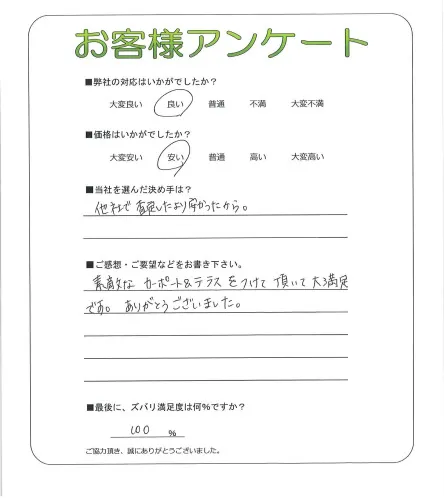 お客様アンケート
■弊社の対応はいかがでしたか？
大変良い 良い 普通 不満 大変不満
■価格はいかがでしたか？
大変安い 安い 普通 高い 大変高い
■当社を選んだ決め手は？
他社で査定したより安かったから。
■ご感想・ご要望などをお書き下さい。
素敵な カーポート&テラス をつけて 頂いて 大満足
です。 ありがとうございました。
■最後に、ズバリ満足度は何％ですか？
100 ％
ご協力頂き、誠にありがとうございました。